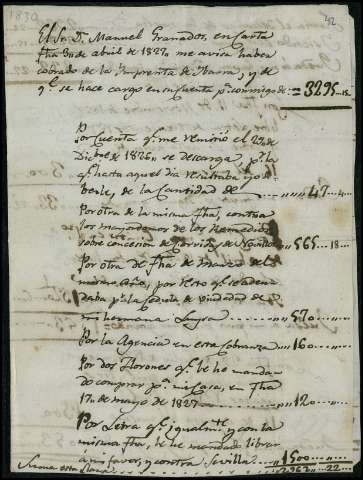 1830
42
El Sr. D. Manuel Granados, en carta
fha 3 de abril de 1827 me avisa haber
cobrado de la Imprenta de Ibarra, y de
q.e se hace cargo en su cuenta p.a conmigo de = 3295.. 18
Por cuenta q.e me remitió el 27 de
Dic.bre de 1826, se descarga, p.r lo
q.e hasta aquel dia resultaba yo de-
berle, de la cantidad de „„ 47.. 4
Por otra de la misma fha, contra
los mayordomos de los Remedios
sobre concesion de Corrida de „ 565.. 18
Por otra de fha de marzo del
mismo año, por resto q.e se adeu-
daba p.r la Cedula de viudedad de
mi hermana Luysa „„ 570
Por la Agencia en esta cobranza „ 160
Por dos florones q.e le he manda-
do comprar p.a mi casa, en fha
17 de mayo de 1827 „„ 120
Por Letra q.e igualm.te y con la
misma fha, le he mandado librar
á mi favor, y contra Sevilla „ 1500
Suma esta llana „ 2962.. 22